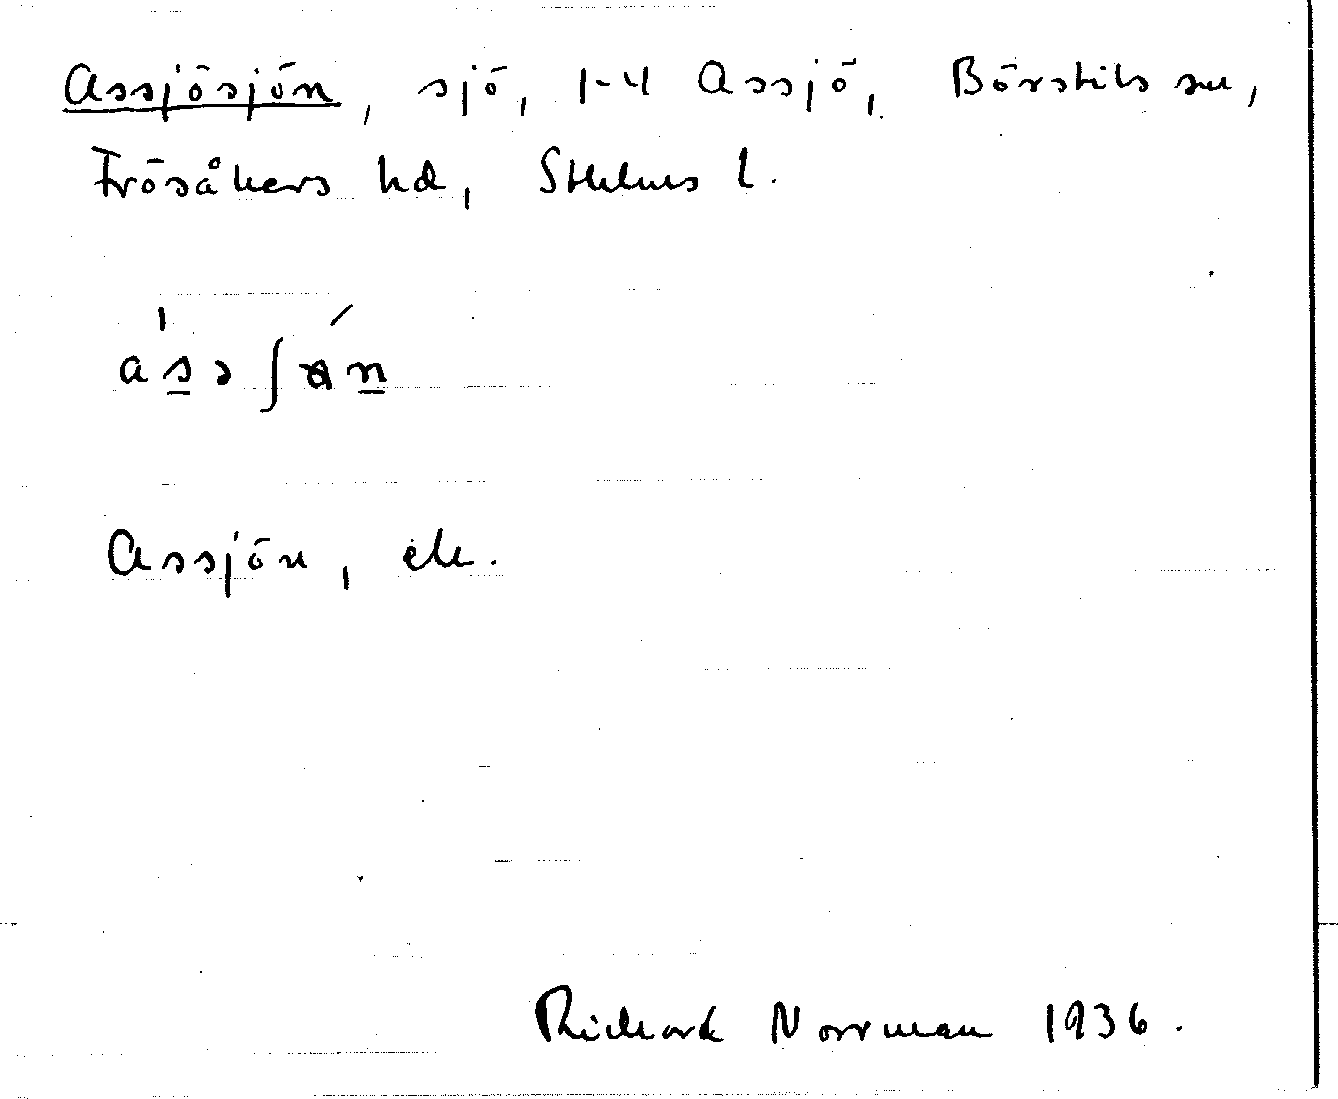 Assjösjön, sjö, 1-4 Assjö, Börstils sn,
Frösåkers hd, Sthlms l.
Assjön, ek.
Richard Norrman 1936.